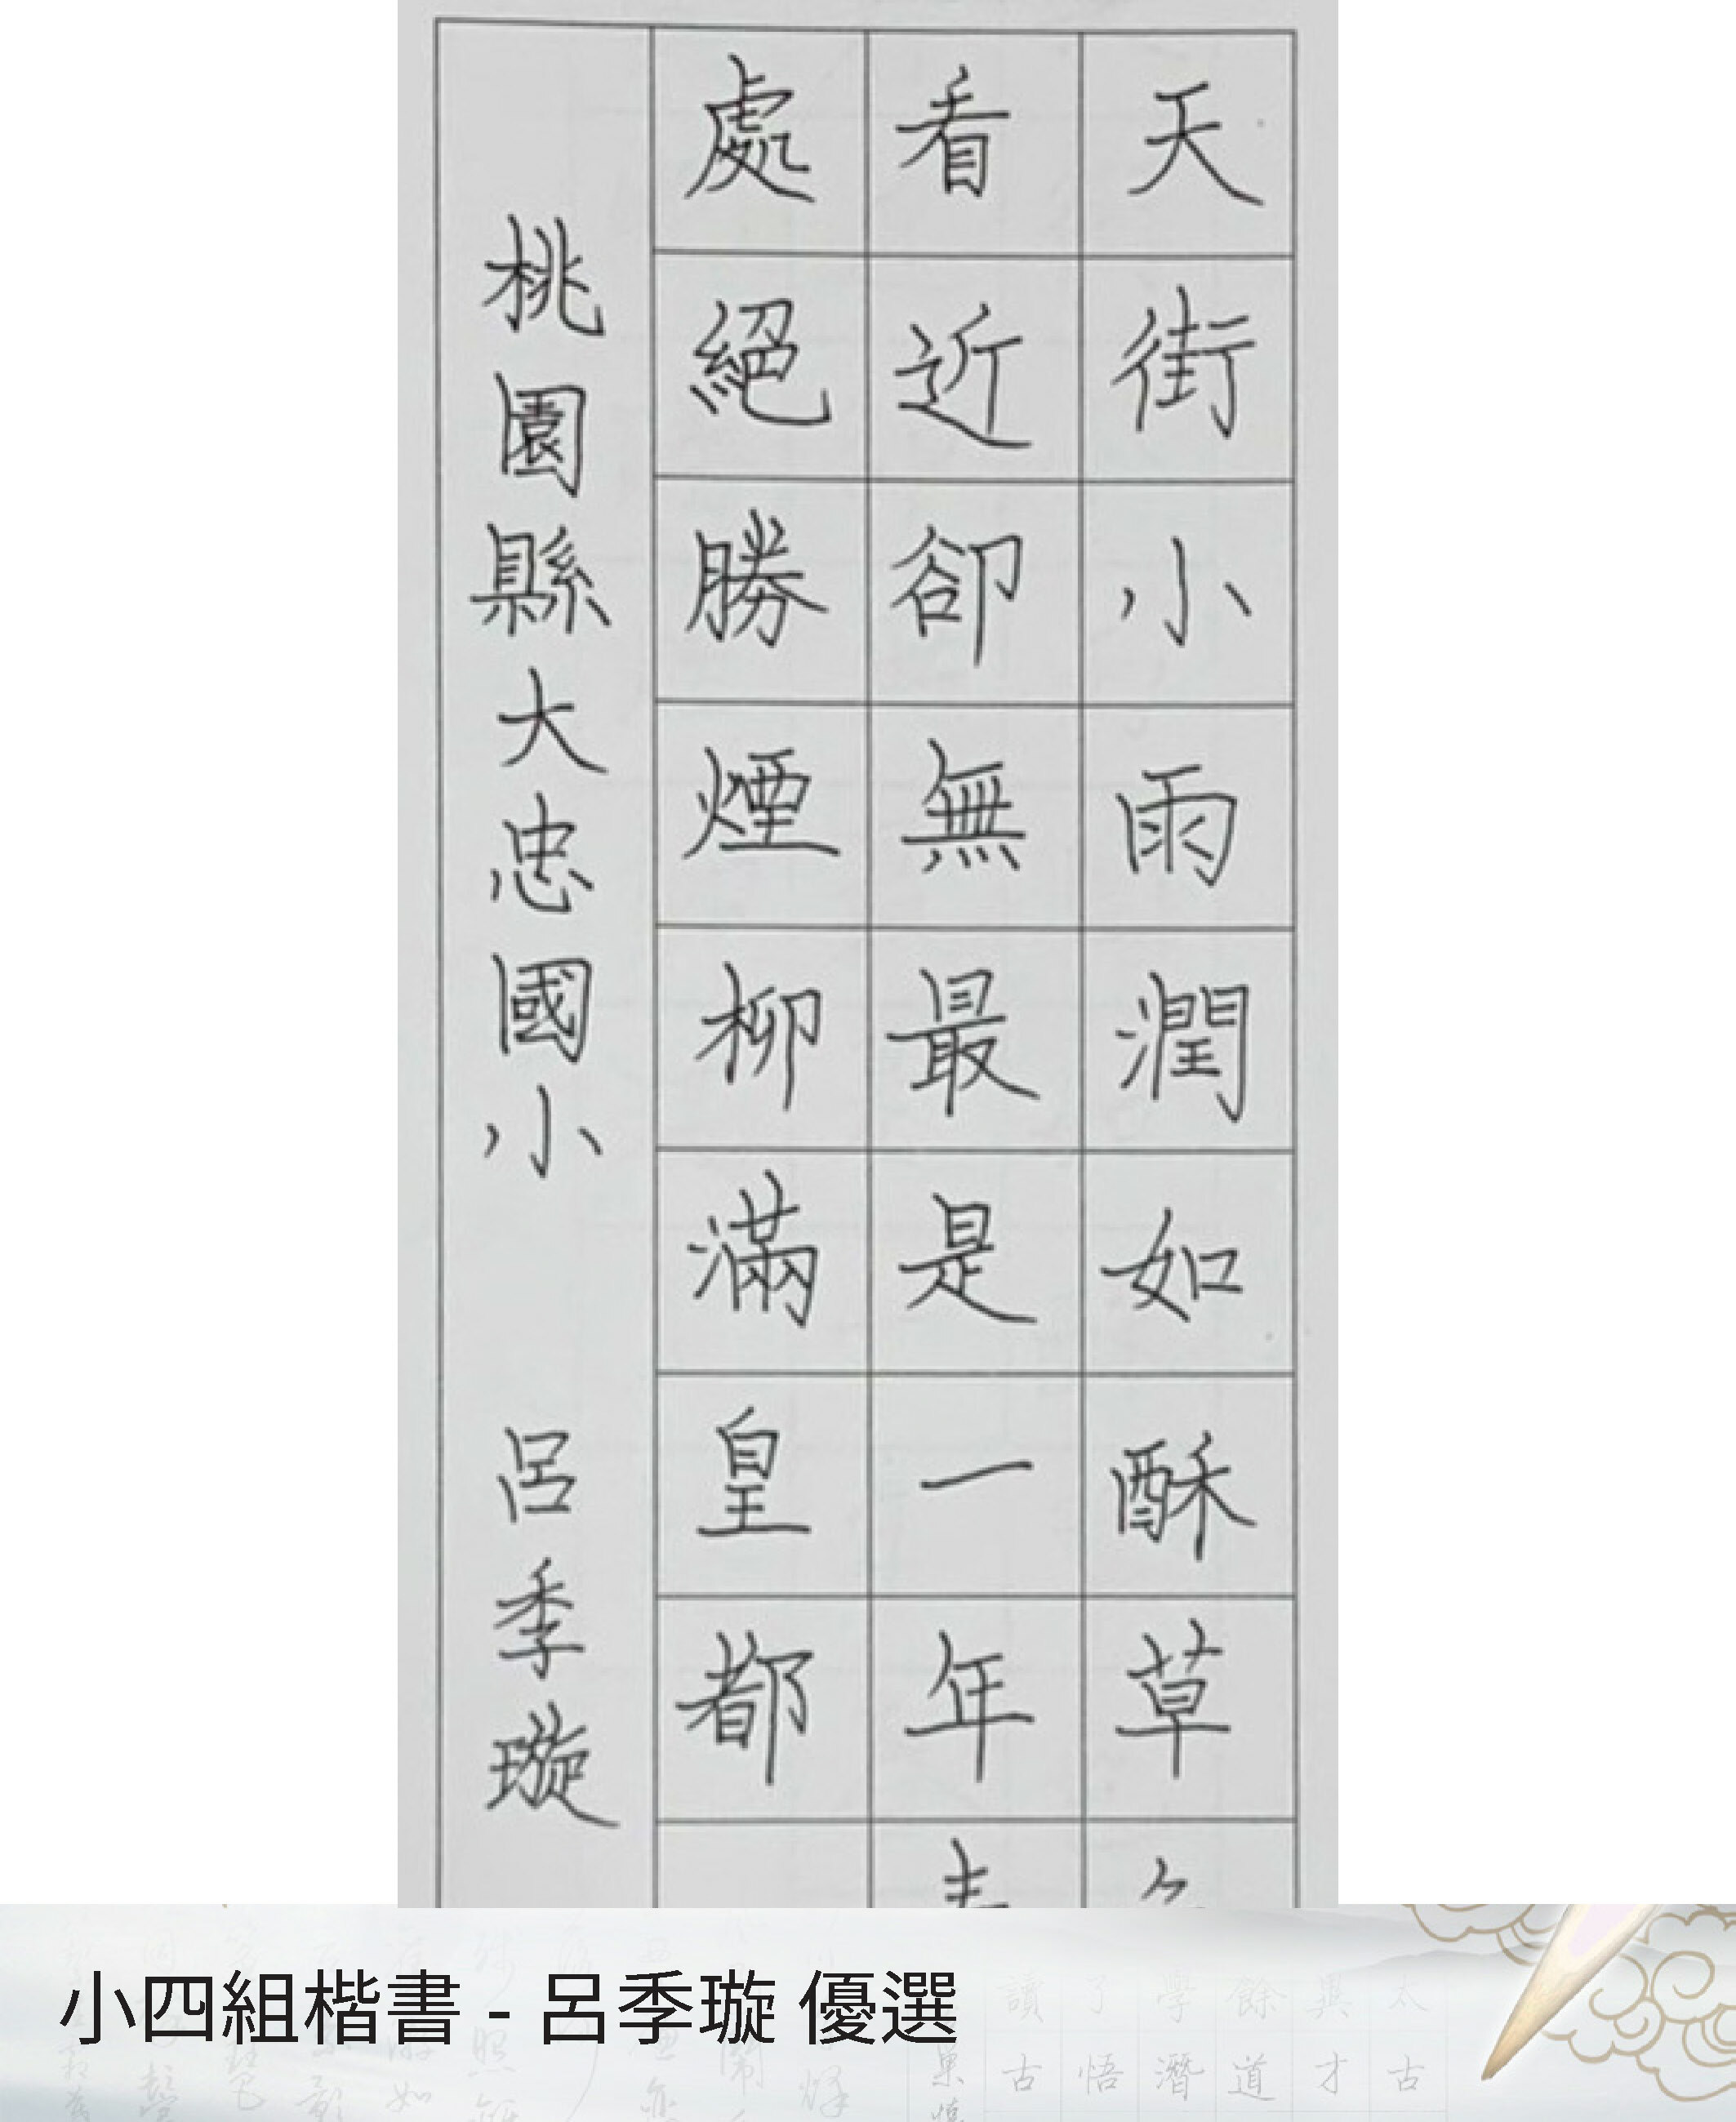 天街小雨潤如酥草
看近卻無最是一年
處絕勝煙柳滿皇都
桃園縣大忠國小 呂季璇
小四組楷書 - 呂季璇 優選